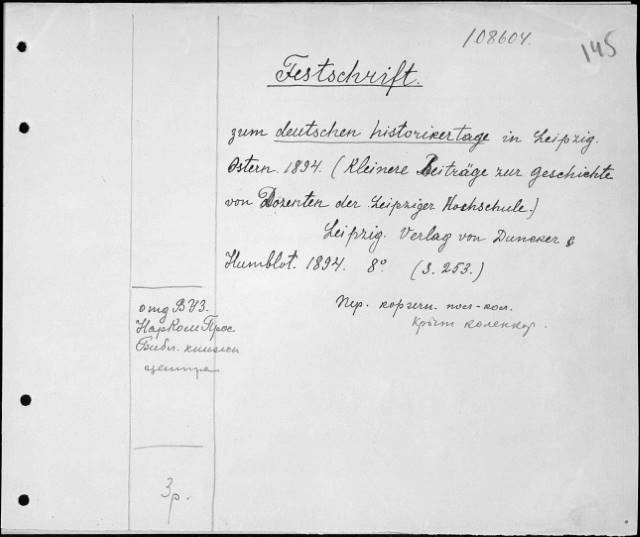 108604.
145
Festschrift.
zum deutschen historikertage in Leipzig.
Ostern. 1894. (Kleinere Beiträge zur geschichte
von Dozenten der Leipziger Hochschule.)
Leipzig. Verlag von Duncker &
Humblot. 1894. 8° (S. 253.)
Пер. коричн. пол-кол.
крыт коленкор.
отд ВУЗ.
НарКомПрос
Библ. книжн
центра
3 р.